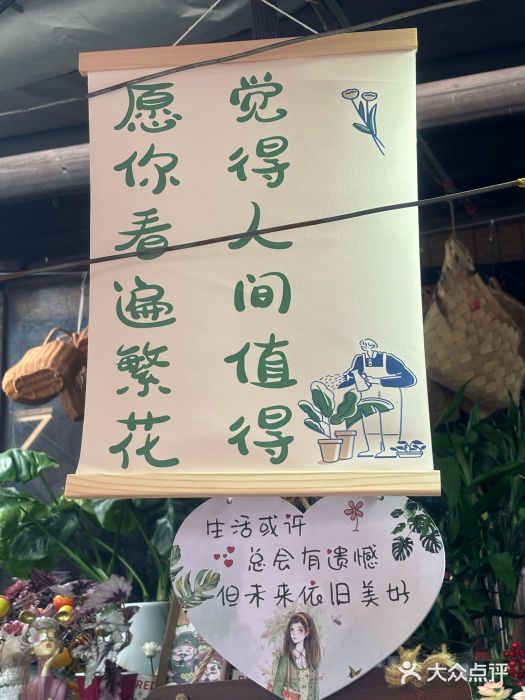 愿你看遍繁花
觉得人间值得
生活或许
总会有遗憾
但未来依旧美好
大众点评